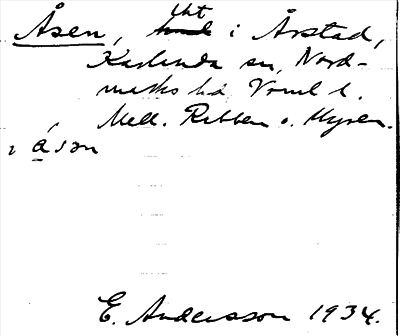 Åsen, tht i Årstad,
Karlanda sn, Nord-
marks hd Vrml l.
Mell. Ribben o. Myren.
i åsən
E. Andersson 1934.